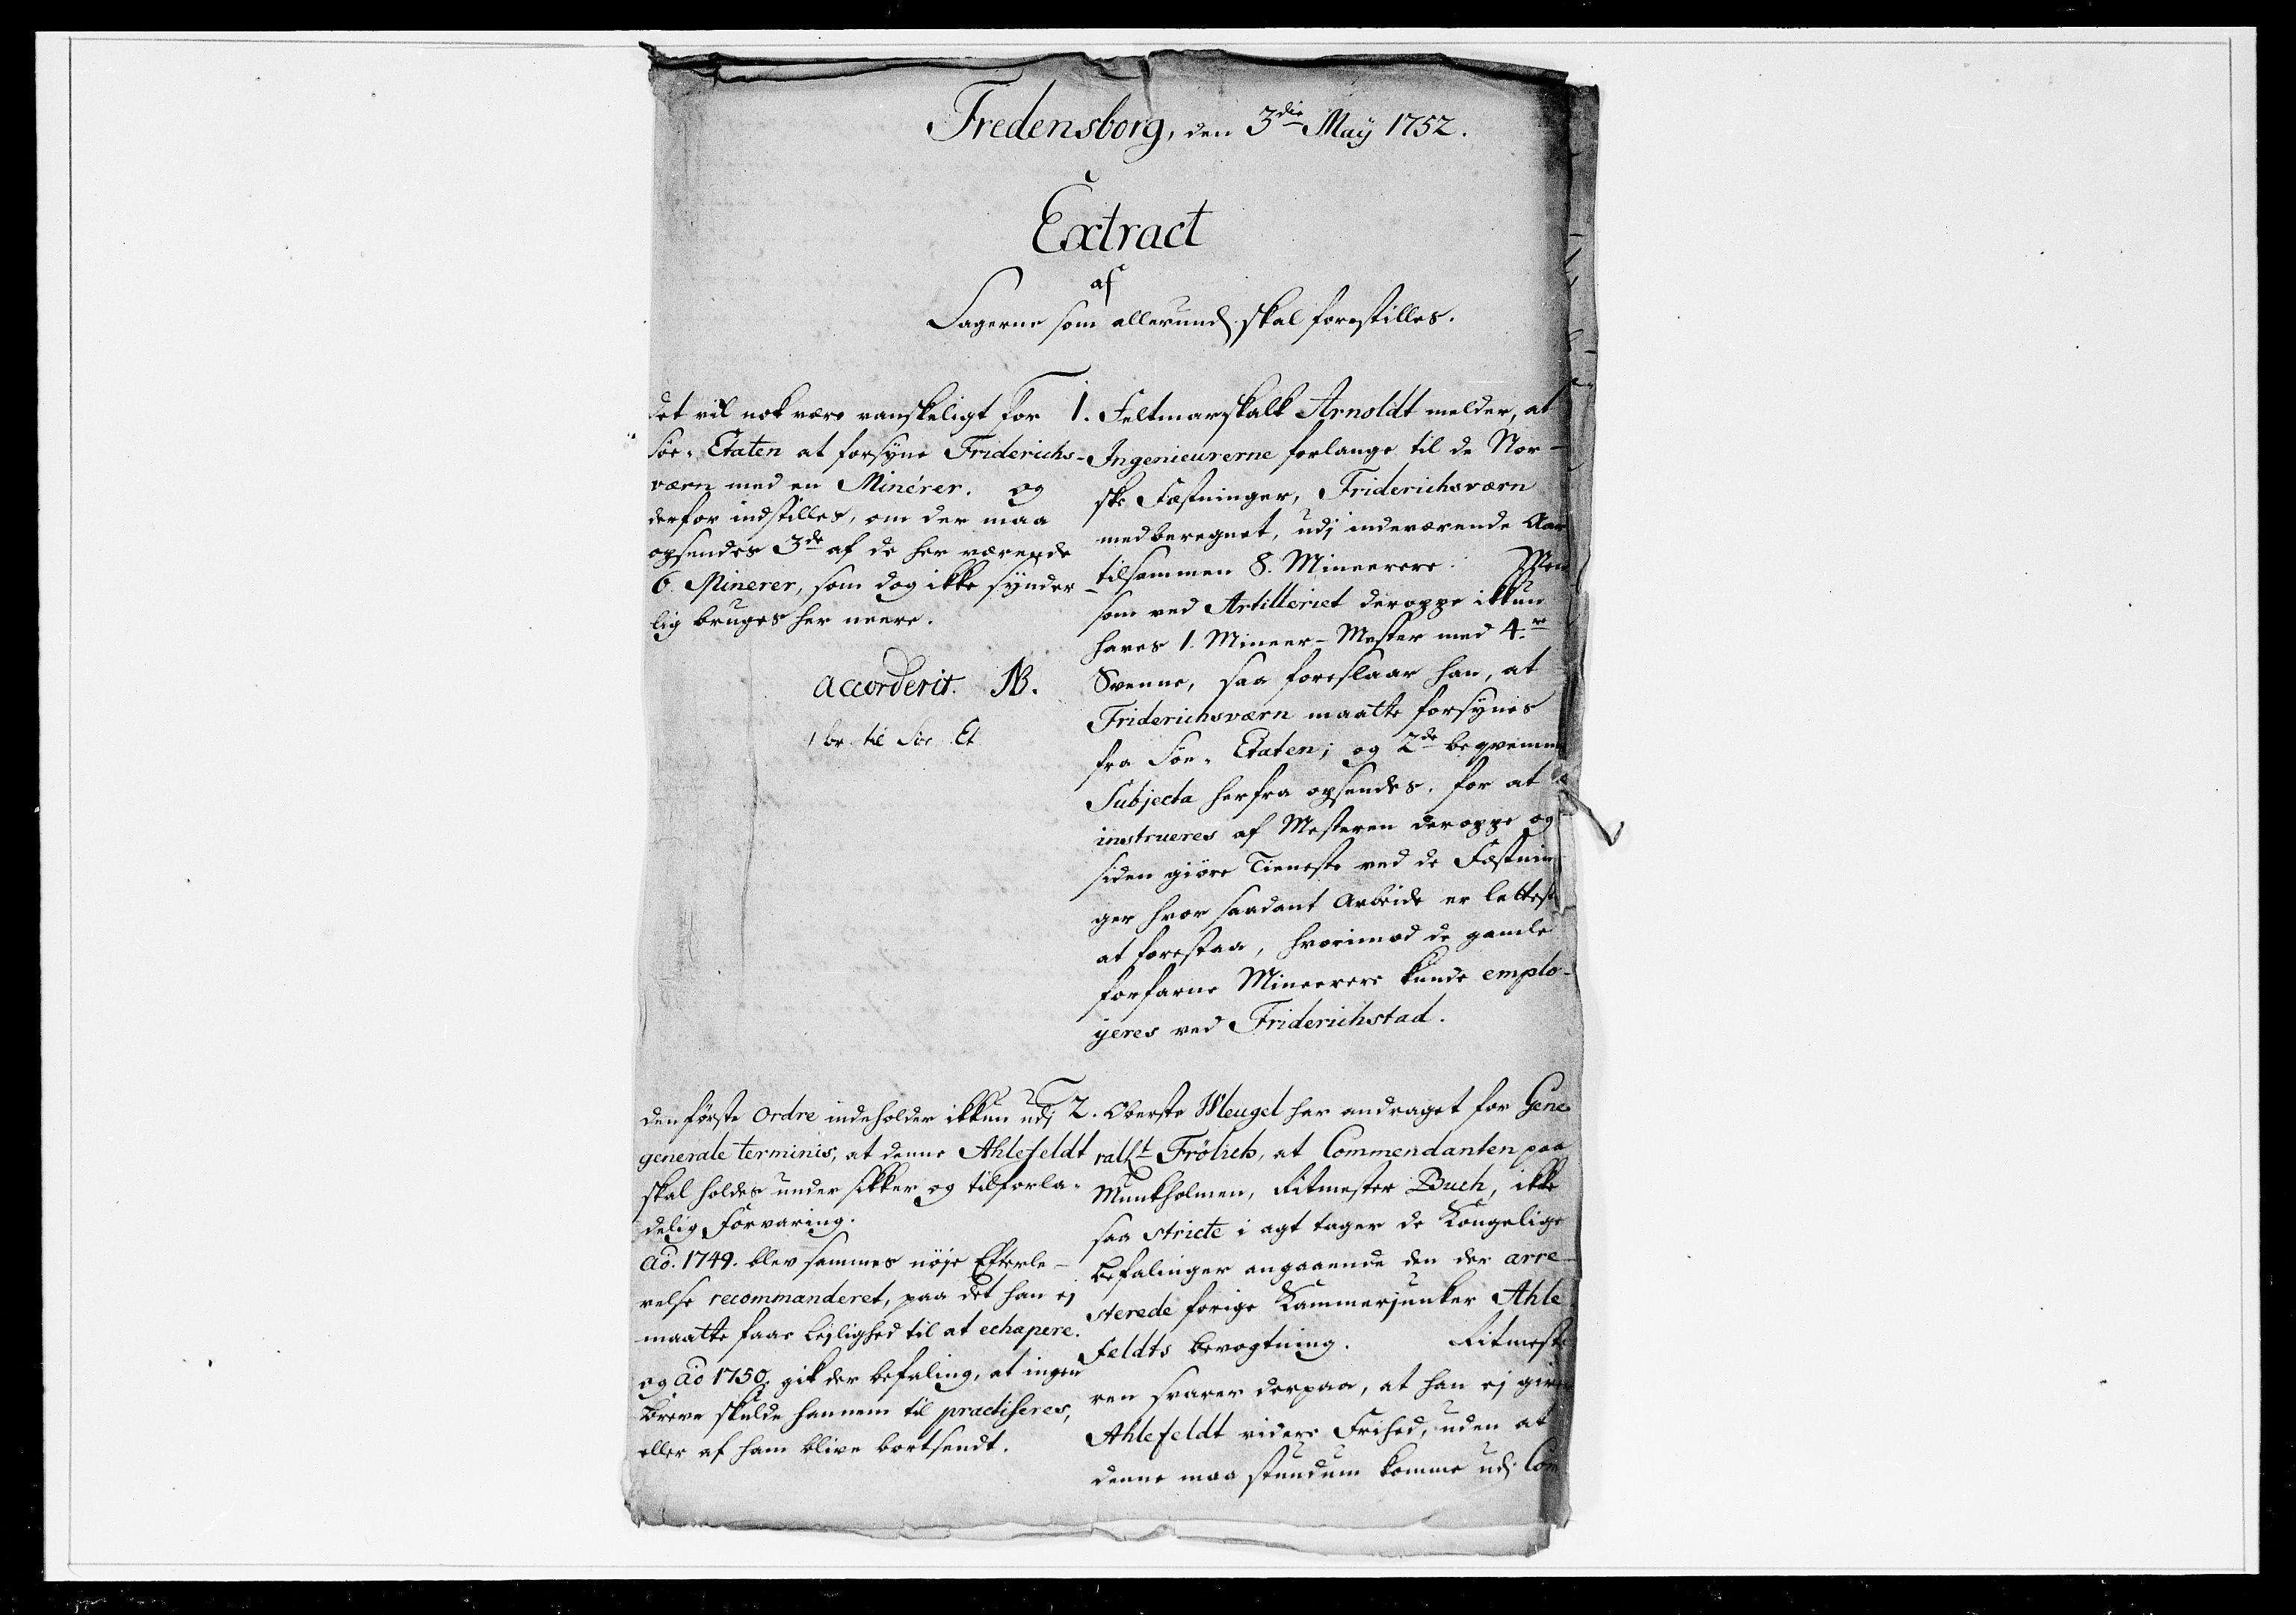 Fredensborg, den 3die Maÿ 1752.
Extract
af
Sagerne som allerund. skal forestilles.
det vil nok være vanskeligt for
Söe-Etaten at forsÿne Friderichs-
værn med en Minérer. og
derfor indstilles, om der maa
opsendes 3de af de her værende
6. Minerer, som dog ikke sÿnder-
lig bruges her neere.
accorderit. NB.
1 br. til Söe Et
1. Feltmarskalk Arnoldt melder, at
Ingenieurerne forlange til de Nor-
ske Fæstninger, Friderichsværn
medberegnet, udj indeværende Aar
tilsammen 8. Mineerere. Men
som ved Artilleriet deroppe ikkun
haves 1. Mineer-Mester med 4re
Svenne, saa foreslaar han, at
Friderichsværn maatte forsÿnes
fra Söe-Etaten; og 2de beqvemme
Subjecta herfra opsendes, for at
instrueres af Mesteren deroppe og
siden giöre Tieneste ved de Fæstnin
ger hvor saadant Arbeide er lettest
at forestaa, hvorimod de gamle
forfarne Mineerere kunde emplo-
ÿeres ved Friderichstad.
den förste Ordre indeholder ikkun udj
generale terminis, at denne Ahlefeldt
skal holdes under sikker og tilforla-
delig Forvaring.
Ao. 1749. blev sammes nöje Efterle-
velse recommanderet, paa det han ej
maatte faae Lejlighed til at echapere.
og Ao 1750. gik der befaling, at ingen
Breve skulde hannem til practiseres,
eller af ham blive bortsendt.
2. Oberste Meugel har andraget for Gene
rallt Frölich, at Commendanten paa
Munkholmen, Ritmester Buch, ikke
saa stricte i agt tager de Kongelige
Befalinger angaaende den der arre-
sterede forige Kammerjunker Ahle
feldts bevogtning. Ritmeste
ren svarer derpaa, at han ej giver
Ahlefeldt videre Frihed, uden at
denne maa stundum komme udj Com